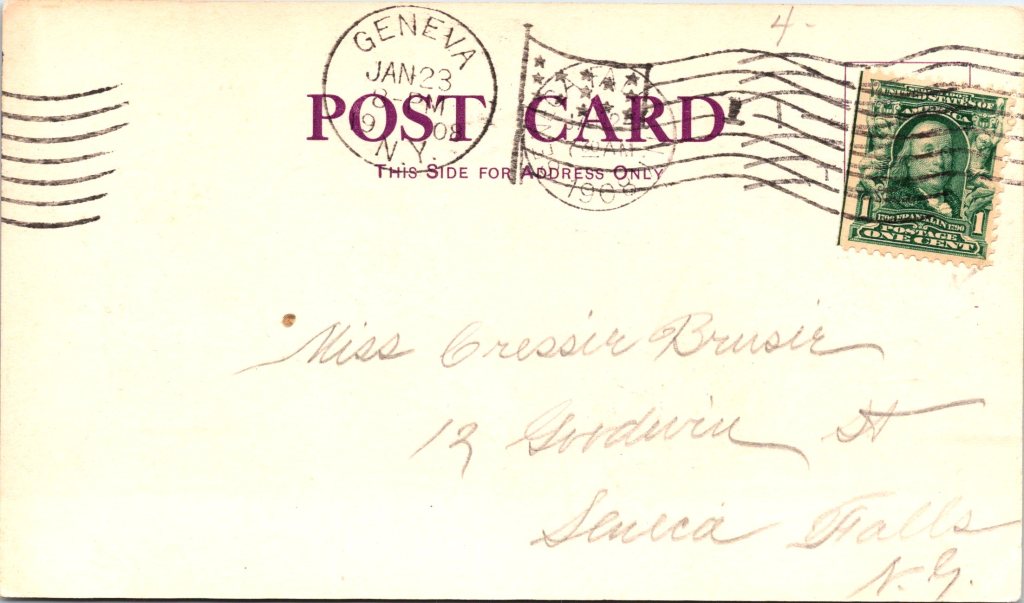 4-
GENEVA
JAN 23
M
19 08
N.Y.
POST CARD
THIS SIDE FOR ADDRESS ONLY
AM
1908
UNITED STATES OF
AMERICA
1 1
1706 FRANKLIN 1790
POSTAGE
ONE CENT
Miss
12 Goodwin St
Seneca Falls
N.Y.